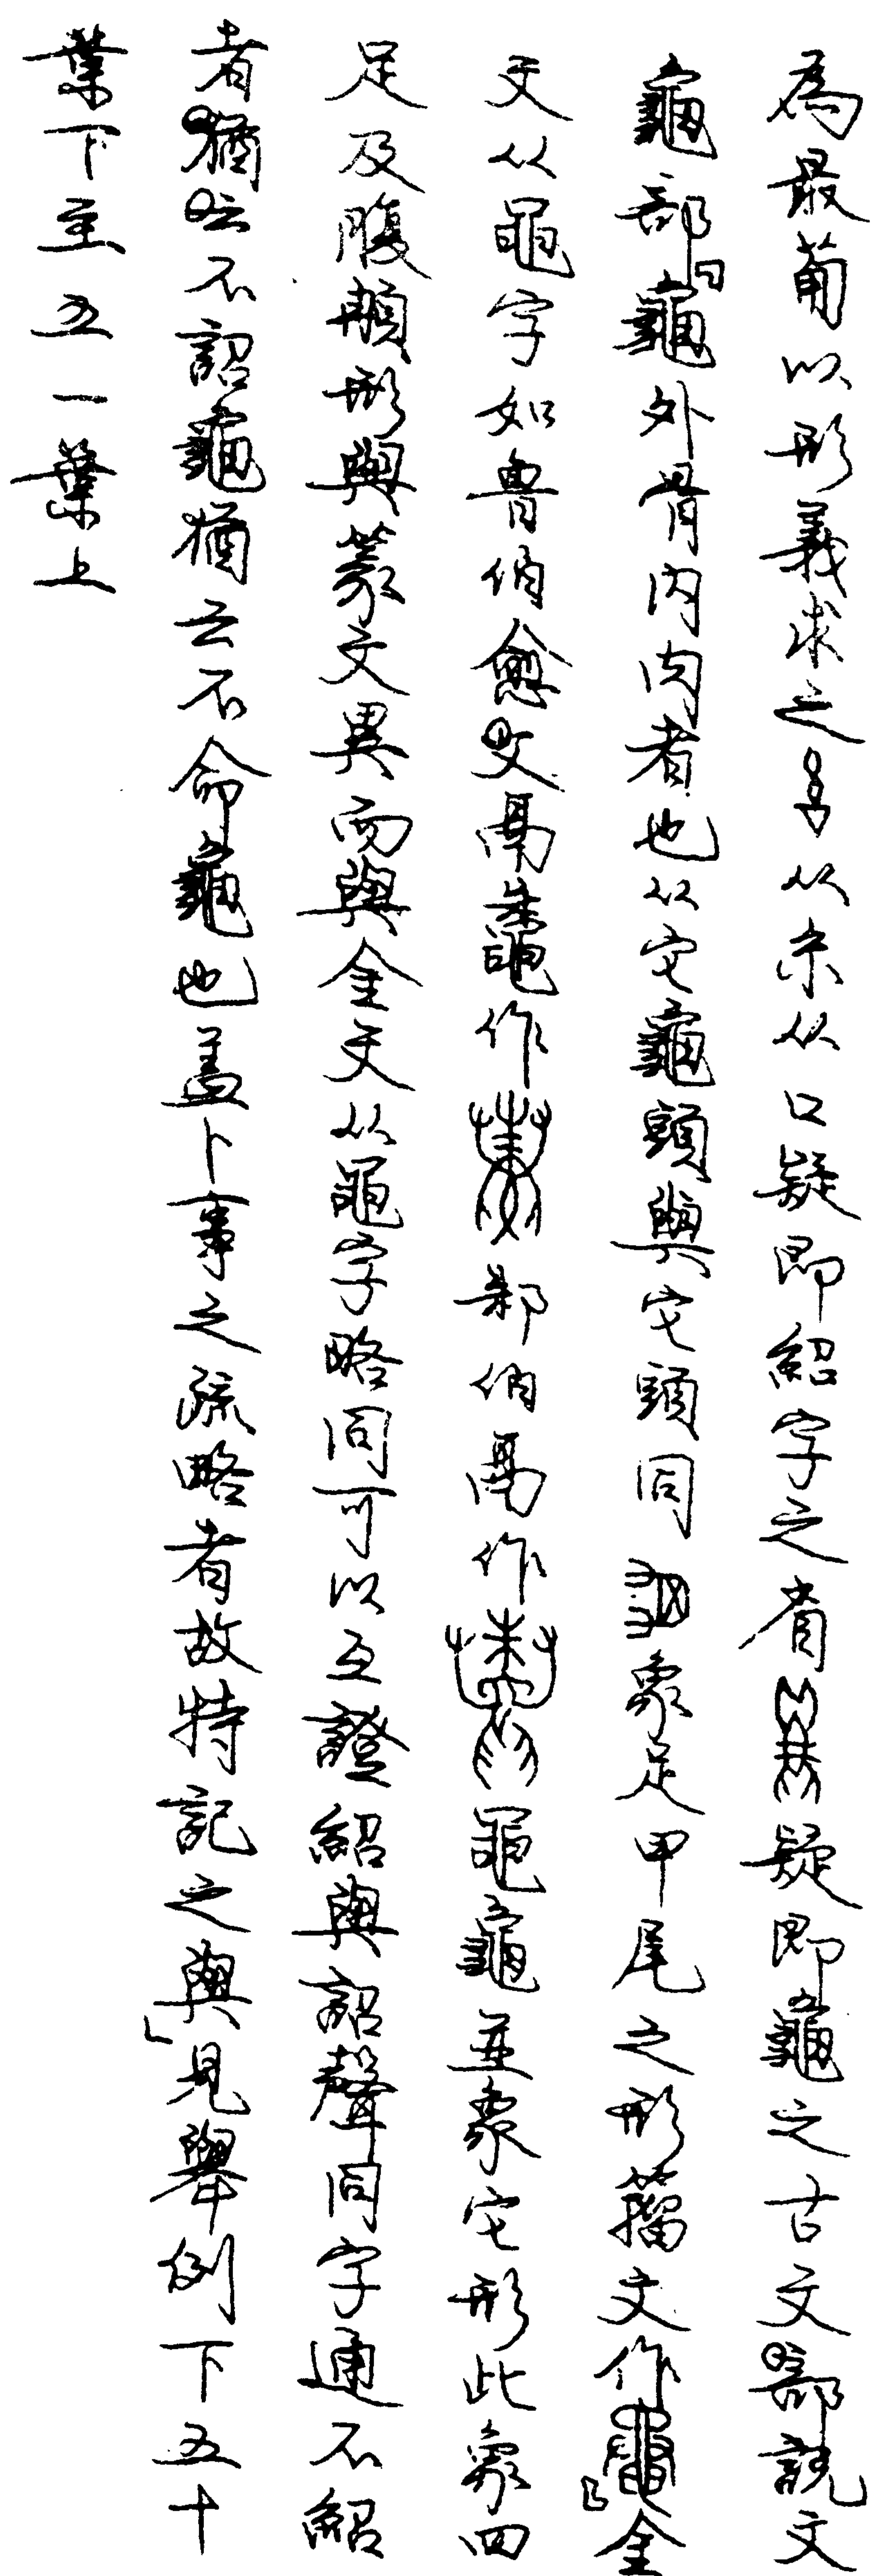 為最葡以形義求之从糸从口疑即紹字之省疑即龜之古文部說文
龜部曰龜外骨內肉者也从它龜頭與它頭同象足甲尾之形籀文作金
文从黽字如魯伯愈父鬲鼄作邾伯鬲作黽龜並象它形此象四
足及腹頰形與篆文異而與金文从黽字略同可以互證紹與詔聲同字通不紹
者猶云不詔龜猶云不命龜也蓋卜事之疏略者故特記之與見舉例下五十
葉下至五一葉上